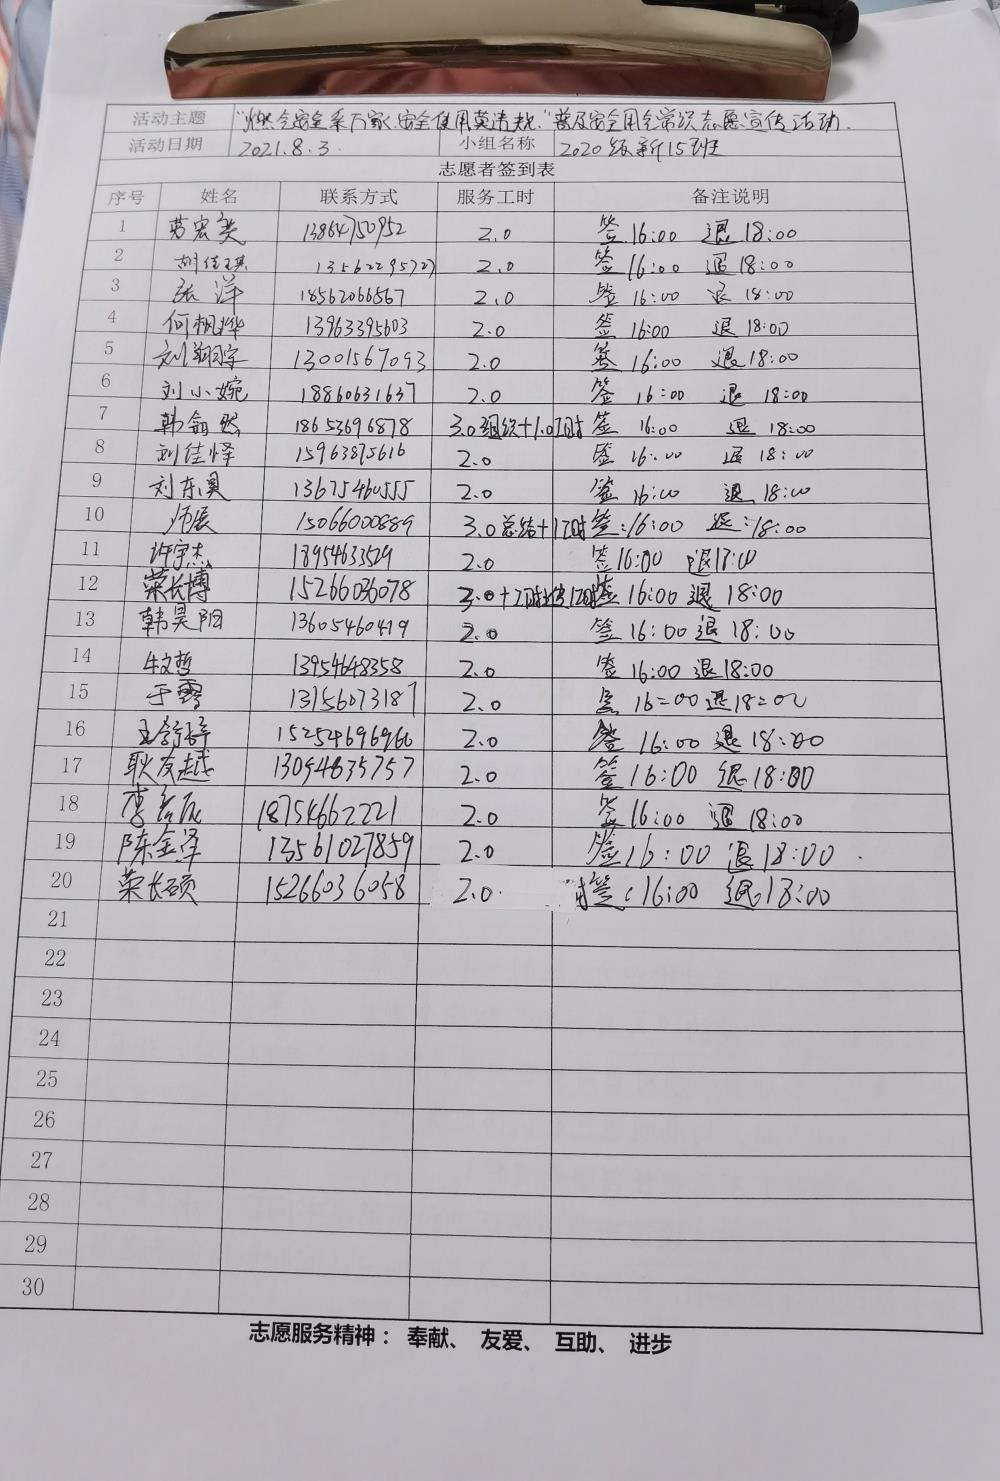 活动主题 "燃气安全系万家、安全使用莫违规."普及安全用气常识志愿宣传活动.
活动日期 2021.8.3. 小组名称 2020级新15班
志愿者签到表
序号 姓名 联系方式 服务工时 备注说明
1 13864750952 2.0 签 16:00 退 18:00
2 2.0 签 16:00 退 18:00
3 张洋 18562066567 2.0 签 16:00 退 18:00
4 何桐烨 13963395603 2.0 签 16:00 退 18:00
5 刘翔宇 13001567093 2.0 签 16:00 退 18:00
6 刘小婉 18860631637 2.0 签 16:00 退 18:00
7 18653696878 3.0组织+1.0工时 签 16:00 退 18:00
8 刘佳怿 15963875616 2.0 签 16:00 退 18:00
9 刘东昊 13675460555 2.0 签 16:00 退 18:00
10 15066000889 3.0总结+1工时 签:16:00 退:18:00
11 许宇杰 18954633529 2.0 签16:00 退18:00
12 荣长博 15266036078 签 16:00 退 18:00
13 韩昊阳 13605460419 2.0 签 16:00 退 18:00
14 牧哲 13954648358 2.0 签 16:00 退 18:00
15 于露 13156073187 2.0 16:00 退18:00
16 15254696966 2.0 签 16:00 退 18:00
17 耿友越 13054635757 2.0 签 16:00 退 18:00
18 18754662221 2.0 签 16:00 退 18:00
19 陈金泽 13561027859 2.0 签 16:00 退 18:00.
20 荣长硕 15266036058 2.0. 签:16:00 退 18:00
21
22
23
24
25
26
27
28
29
30
志愿服务精神： 奉献、 友爱、 互助、 进步